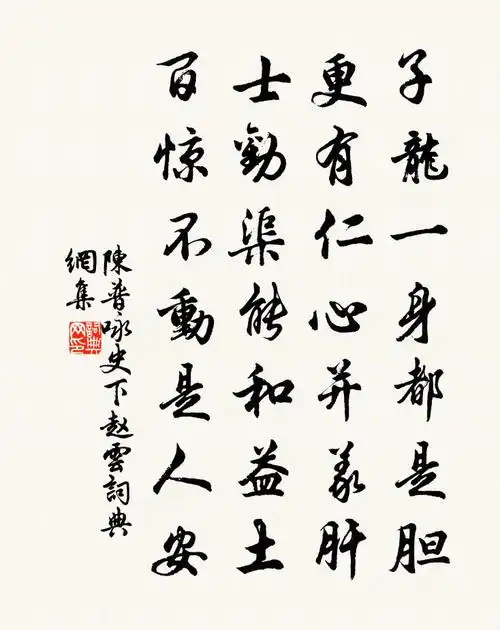 子龍一身都是胆
更有仁心并義肝
士勸渠能和益土
百惊不動是人安
陳普咏史下赵雲詞典
網集